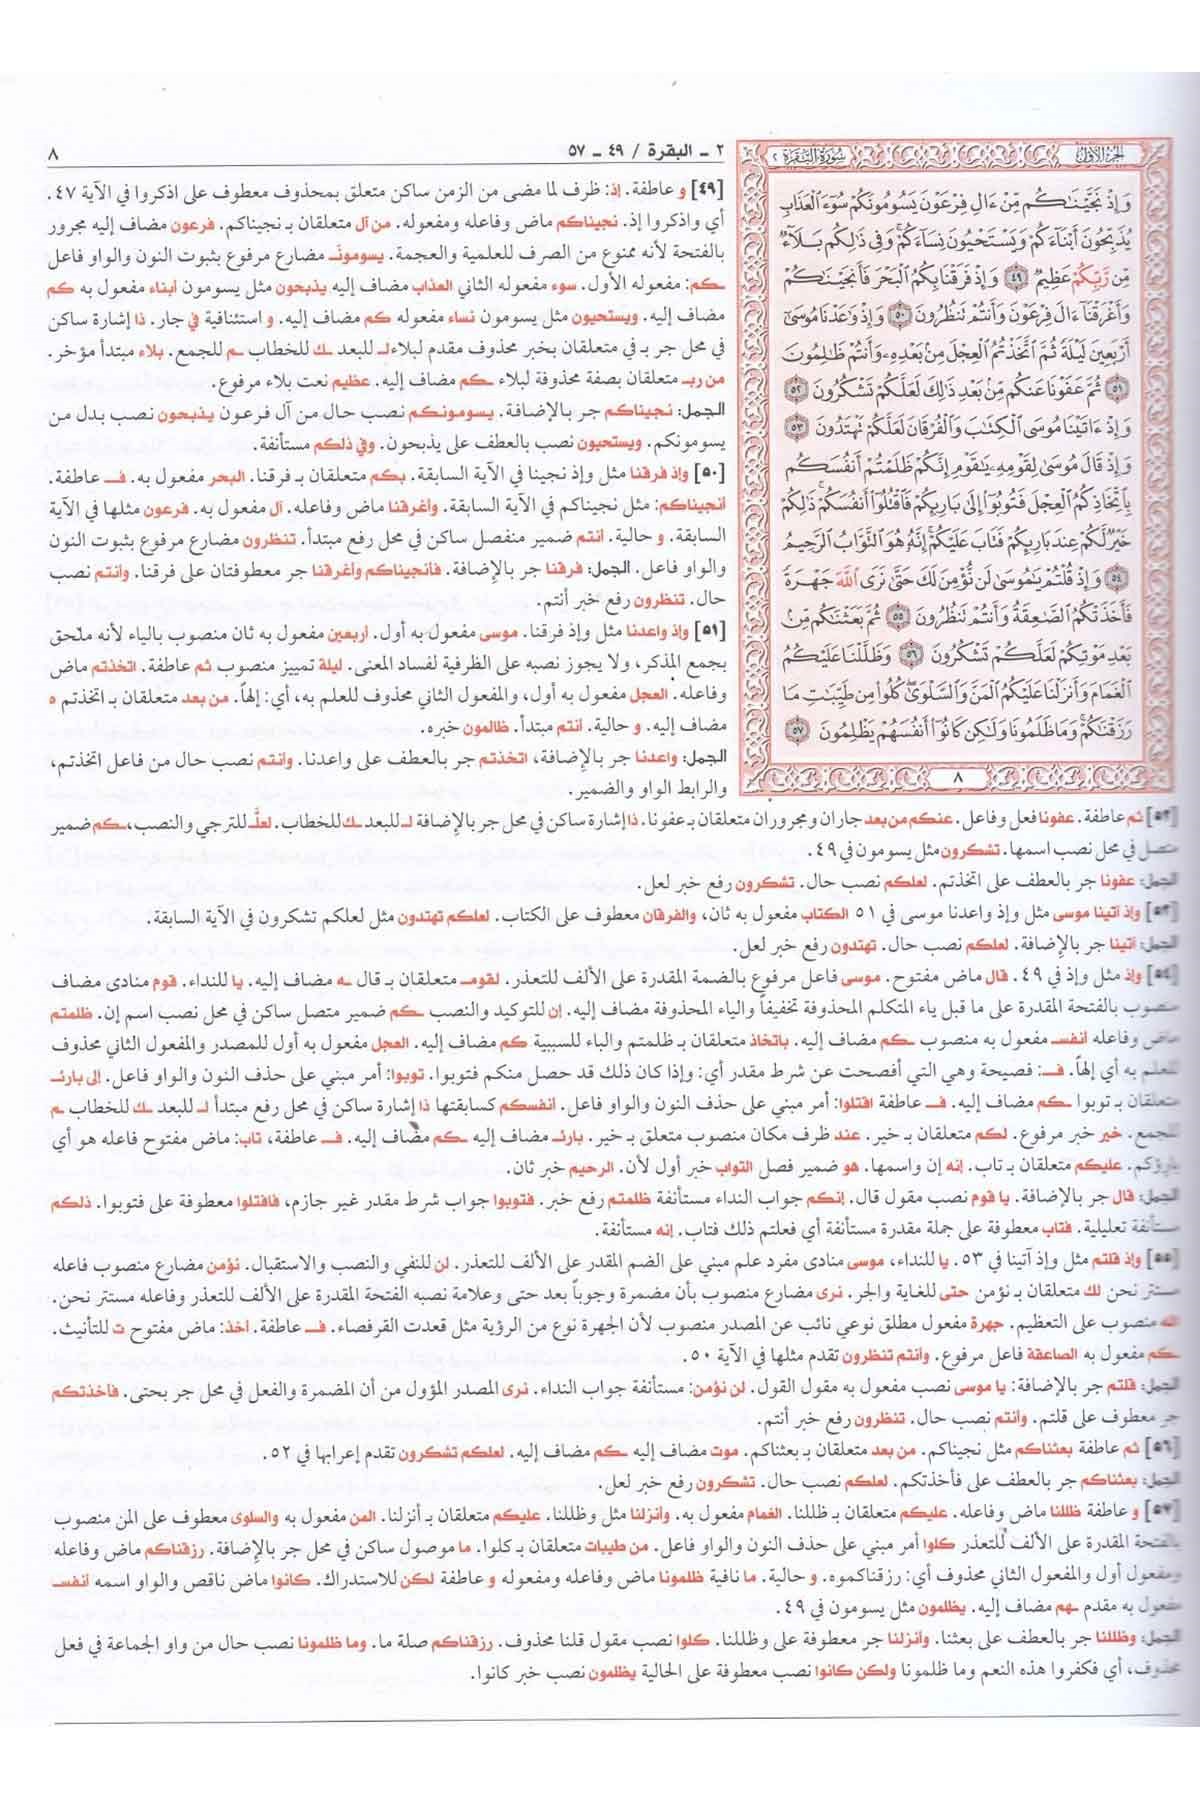 ٨
٢ ـ البقرة / ٤٩ ـ ٥٧
سُورَةُ البَقَرَة ٢
الجزء الأول
وَإِذْ نَجَّيْنَٰكُم مِّنْ ءَالِ فِرْعَوْنَ يَسُومُونَكُمْ سُوٓءَ ٱلْعَذَابِ
يُذَبِّحُونَ أَبْنَآءَكُمْ وَيَسْتَحْيُونَ نِسَآءَكُمْ ۚ وَفِى ذَٰلِكُم بَلَآءٌ
مِّن رَّبِّكُمْ عَظِيمٌ ٤٩ وَإِذْ فَرَقْنَا بِكُمُ ٱلْبَحْرَ فَأَنجَيْنَٰكُمْ
وَأَغْرَقْنَآ ءَالَ فِرْعَوْنَ وَأَنتُمْ تَنظُرُونَ ٥٠ وَإِذْ وَٰعَدْنَا مُوسَىٰٓ
أَرْبَعِينَ لَيْلَةً ثُمَّ ٱتَّخَذْتُمُ ٱلْعِجْلَ مِنۢ بَعْدِهِۦ وَأَنتُمْ ظَٰلِمُونَ
٥١ ثُمَّ عَفَوْنَا عَنكُم مِّنۢ بَعْدِ ذَٰلِكَ لَعَلَّكُمْ تَشْكُرُونَ ٥٢
وَإِذْ ءَاتَيْنَا مُوسَى ٱلْكِتَٰبَ وَٱلْفُرْقَانَ لَعَلَّكُمْ تَهْتَدُونَ ٥٣
وَإِذْ قَالَ مُوسَىٰ لِقَوْمِهِۦ يَٰقَوْمِ إِنَّكُمْ ظَلَمْتُمْ أَنفُسَكُم
بِٱتِّخَاذِكُمُ ٱلْعِجْلَ فَتُوبُوٓا۟ إِلَىٰ بَارِئِكُمْ فَٱقْتُلُوٓا۟ أَنفُسَكُمْ ذَٰلِكُمْ
خَيْرٌ لَّكُمْ عِندَ بَارِئِكُمْ فَتَابَ عَلَيْكُمْ ۚ إِنَّهُۥ هُوَ ٱلتَّوَّابُ ٱلرَّحِيمُ
٥٤ وَإِذْ قُلْتُمْ يَٰمُوسَىٰ لَن نُّؤْمِنَ لَكَ حَتَّىٰ نَرَى ٱللَّهَ جَهْرَةً
فَأَخَذَتْكُمُ ٱلصَّٰعِقَةُ وَأَنتُمْ تَنظُرُونَ ٥٥ ثُمَّ بَعَثْنَٰكُم مِّنۢ
بَعْدِ مَوْتِكُمْ لَعَلَّكُمْ تَشْكُرُونَ ٥٦ وَظَلَّلْنَا عَلَيْكُمُ
ٱلْغَمَامَ وَأَنزَلْنَا عَلَيْكُمُ ٱلْمَنَّ وَٱلسَّلْوَىٰ ۖ كُلُوا۟ مِن طَيِّبَٰتِ مَا
رَزَقْنَٰكُمْ ۖ وَمَا ظَلَمُونَا وَلَٰكِن كَانُوٓا۟ أَنفُسَهُمْ يَظْلِمُونَ ٥٧
٨
[٤٩] و عاطفة. إذ: ظرف لما مضى من الزمن ساكن متعلق بمحذوف معطوف على اذكروا في الآية ٤٧.
أي واذكروا إذ. نجيناكم ماض وفاعله ومفعوله. من آل متعلقان بـ نجيناكم. فرعون مضاف إليه مجرور
بالفتحة لأنه ممنوع من الصرف للعلمية والعجمة. يسومونـ مضارع مرفوع بثبوت النون والواو فاعل
ـكم: مفعوله الأول. سوء مفعوله الثاني العذاب مضاف إليه يذبحون مثل يسومون أبناء مفعول به كم
مضاف إليه. ويستحيون مثل يسومون نساء مفعوله كم مضاف إليه. و استئنافية في جار. ذا إشارة ساكن
في محل جر بـ في متعلقان بخبر محذوف مقدم لبلاء لـ للبعد ـك للخطاب ـم للجمع. بلاء مبتدأ مؤخر.
من ربـ متعلقان بصفة محذوفة لبلاء ـكم مضاف إليه. عظيم نعت بلاء مرفوع.
الجمل: نجيناكم جر بالإضافة. يسومونكم نصب حال من آل فرعون يذبحون نصب بدل من
يسومونكم. ويستحيون نصب بالعطف على يذبحون. وفي ذلكم مستأنفة.
[٥٠] وإذ فرقنا مثل وإذ نجينا في الآية السابقة. بكم متعلقان بـ فرقنا. البحر مفعول به. فـ عاطفة.
أنجيناكم: مثل نجيناكم في الآية السابقة. وأغرقنا ماض وفاعله. آل مفعول به. فرعون مثلها في الآية
السابقة. و حالية. أنتم ضمير منفصل ساكن في محل رفع مبتدأ. تنظرون مضارع مرفوع بثبوت النون
والواو فاعل. الجمل: فرقنا جر بالإضافة. فأنجيناكم وأغرقنا جر معطوفتان على فرقنا. وأنتم نصب
حال. تنظرون رفع خبر أنتم.
[٥١] وإذ واعدنا مثل وإذ فرقنا. موسى مفعول به أول. أربعين مفعول به ثان منصوب بالياء لأنه ملحق
بجمع المذكر، ولا يجوز نصبه على الظرفية لفساد المعنى. ليلة تمييز منصوب ثم عاطفة. اتخذتم ماض
وفاعله. العجل مفعول به أول، والمفعول الثاني محذوف للعلم به، أي: إلهاً. من بعد متعلقان بـ اتخذتم ه
مضاف إليه. و حالية. أنتم مبتدأ. ظالمون خبره.
الجمل: واعدنا جر بالإضافة، اتخذتم جر بالعطف على واعدنا. وأنتم نصب حال من فاعل اتخذتم،
والرابط الواو والضمير.
[٥٢] ثم عاطفة. عفونا فعل وفاعل. عنكم من بعد جاران ومجروران متعلقان بـ عفونا. ذا إشارة ساكن في محل جر بالإضافة لـ للبعد ـك للخطاب. لعلّ للترجي والنصب، ـكم ضمير
متصل في محل نصب اسمها. تشكرون مثل يسومون في ٤٩.
الجمل: عفونا جر بالعطف على اتخذتم. لعلكم نصب حال. تشكرون رفع خبر لعل.
[٥٣] وإذ آتينا موسى مثل وإذ واعدنا موسى في ٥١ الكتاب مفعول به ثان، والفرقان معطوف على الكتاب. لعلكم تهتدون مثل لعلكم تشكرون في الآية السابقة.
الجمل: آتينا جر بالإضافة. لعلكم نصب حال. تهتدون رفع خبر لعل.
[٥٤] وإذ مثل وإذ في ٤٩. قال ماض مفتوح. موسى فاعل مرفوع بالضمة المقدرة على الألف للتعذر. لقومـ متعلقان بـ قال ـه مضاف إليه. يا للنداء. قوم منادى مضاف
منصوب بالفتحة المقدرة على ما قبل ياء المتكلم المحذوفة تخفيفاً والياء المحذوفة مضاف إليه. إن للتوكيد والنصب ـكم ضمير متصل ساكن في محل نصب اسم إن. ظلمتم
ماض وفاعله أنفسـ مفعول به منصوب ـكم مضاف إليه. باتخاذ متعلقان بـ ظلمتم والباء للسببية كم مضاف إليه. العجل مفعول به أول للمصدر والمفعول الثاني محذوف
للعلم به أي إلهاً. فـ: فصيحة وهي التي أفصحت عن شرط مقدر أي: وإذا كان ذلك قد حصل منكم فتوبوا. توبوا: أمر مبني على حذف النون والواو فاعل. إلى بارئـ
متعلقان بـ توبوا ـكم مضاف إليه. فـ عاطفة اقتلوا: أمر مبني على حذف النون والواو فاعل. أنفسكم كسابقتها ذا إشارة ساكن في محل رفع مبتدأ لـ للبعد ـك للخطاب ـم
للجمع. خير خبر مرفوع. لكم متعلقان بـ خير. عند ظرف مكان منصوب متعلق بـ خير. بارئـ مضاف إليه ـكم مضاف إليه. فـ عاطفة، تاب: ماض مفتوح فاعله هو أي
بارؤكم. عليكم متعلقان بـ تاب. إنه إن واسمها. هو ضمير فصل التواب خبر أول لأن. الرحيم خبر ثان.
الجمل: قال جر بالإضافة. يا قوم نصب مقول قال. إنكم جواب النداء مستأنفة ظلمتم رفع خبر. فتوبوا جواب شرط مقدر غير جازم، فاقتلوا معطوفة على فتوبوا. ذلكم
مستأنفة تعليلية. فتاب معطوفة على جملة مقدرة مستأنفة أي فعلتم ذلك فتاب. إنه مستأنفة.
[٥٥] وإذ قلتم مثل وإذ آتينا في ٥٣. يا للنداء، موسى منادى مفرد علم مبني على الضم المقدر على الألف للتعذر. لن للنفي والنصب والاستقبال. نؤمن مضارع منصوب فاعله
مستتر نحن لك متعلقان بـ نؤمن حتى للغاية والجر. نرى مضارع منصوب بأن مضمرة وجوباً بعد حتى وعلامة نصبه الفتحة المقدرة على الألف للتعذر وفاعله مستتر نحن.
الله منصوب على التعظيم. جهرة مفعول مطلق نوعي نائب عن المصدر منصوب لأن الجهرة نوع من الرؤية مثل قعدت القرفصاء. فـ عاطفة. أخذ: ماض مفتوح ت للتأنيث.
ـكم مفعول به الصاعقة فاعل مرفوع. وأنتم تنظرون تقدم مثلها في الآية ٥٠.
الجمل: قلتم جر بالإضافة: يا موسى نصب مفعول به مقول القول. لن نؤمن: مستأنفة جواب النداء. نرى المصدر المؤول من أن المضمرة والفعل في محل جر بحتى. فأخذتكم
جر معطوف على قلتم. وأنتم نصب حال. تنظرون رفع خبر أنتم.
[٥٦] ثم عاطفة بعثناكم مثل نجيناكم. من بعد متعلقان بـ بعثناكم. موت مضاف إليه ـكم مضاف إليه. لعلكم تشكرون تقدم إعرابها في ٥٢.
الجمل: بعثناكم جر بالعطف على فأخذتكم. لعلكم نصب حال. تشكرون رفع خبر لعل.
[٥٧] و عاطفة ظللنا ماض وفاعله. عليكم متعلقان بـ ظللنا. الغمام مفعول به. وأنزلنا مثل وظللنا. عليكم متعلقان بـ أنزلنا. المن مفعول به والسلوى معطوف على المن منصوب
بالفتحة المقدرة على الألف للتعذر كلوا أمر مبني على حذف النون والواو فاعل. من طيبات متعلقان بـ كلوا. ما موصول ساكن في محل جر بالإضافة. رزقناكم ماض وفاعله
ومفعول أول والمفعول الثاني محذوف أي: رزقناكموه. و حالية. ما نافية ظلمونا ماض وفاعله ومفعوله و عاطفة لكن للاستدراك. كانوا ماض ناقص والواو اسمه أنفسـ
مفعول به مقدم ـهم مضاف إليه. يظلمون مثل يسومون في ٤٩.
الجمل: وظللنا جر بالعطف على بعثنا. وأنزلنا جر معطوفة على وظللنا. كلوا نصب مقول قلنا محذوف. رزقناكم صلة ما. وما ظلمونا نصب حال من واو الجماعة في فعل
محذوف، أي فكفروا هذه النعم وما ظلمونا ولكن كانوا نصب معطوفة على الحالية يظلمون نصب خبر كانوا.